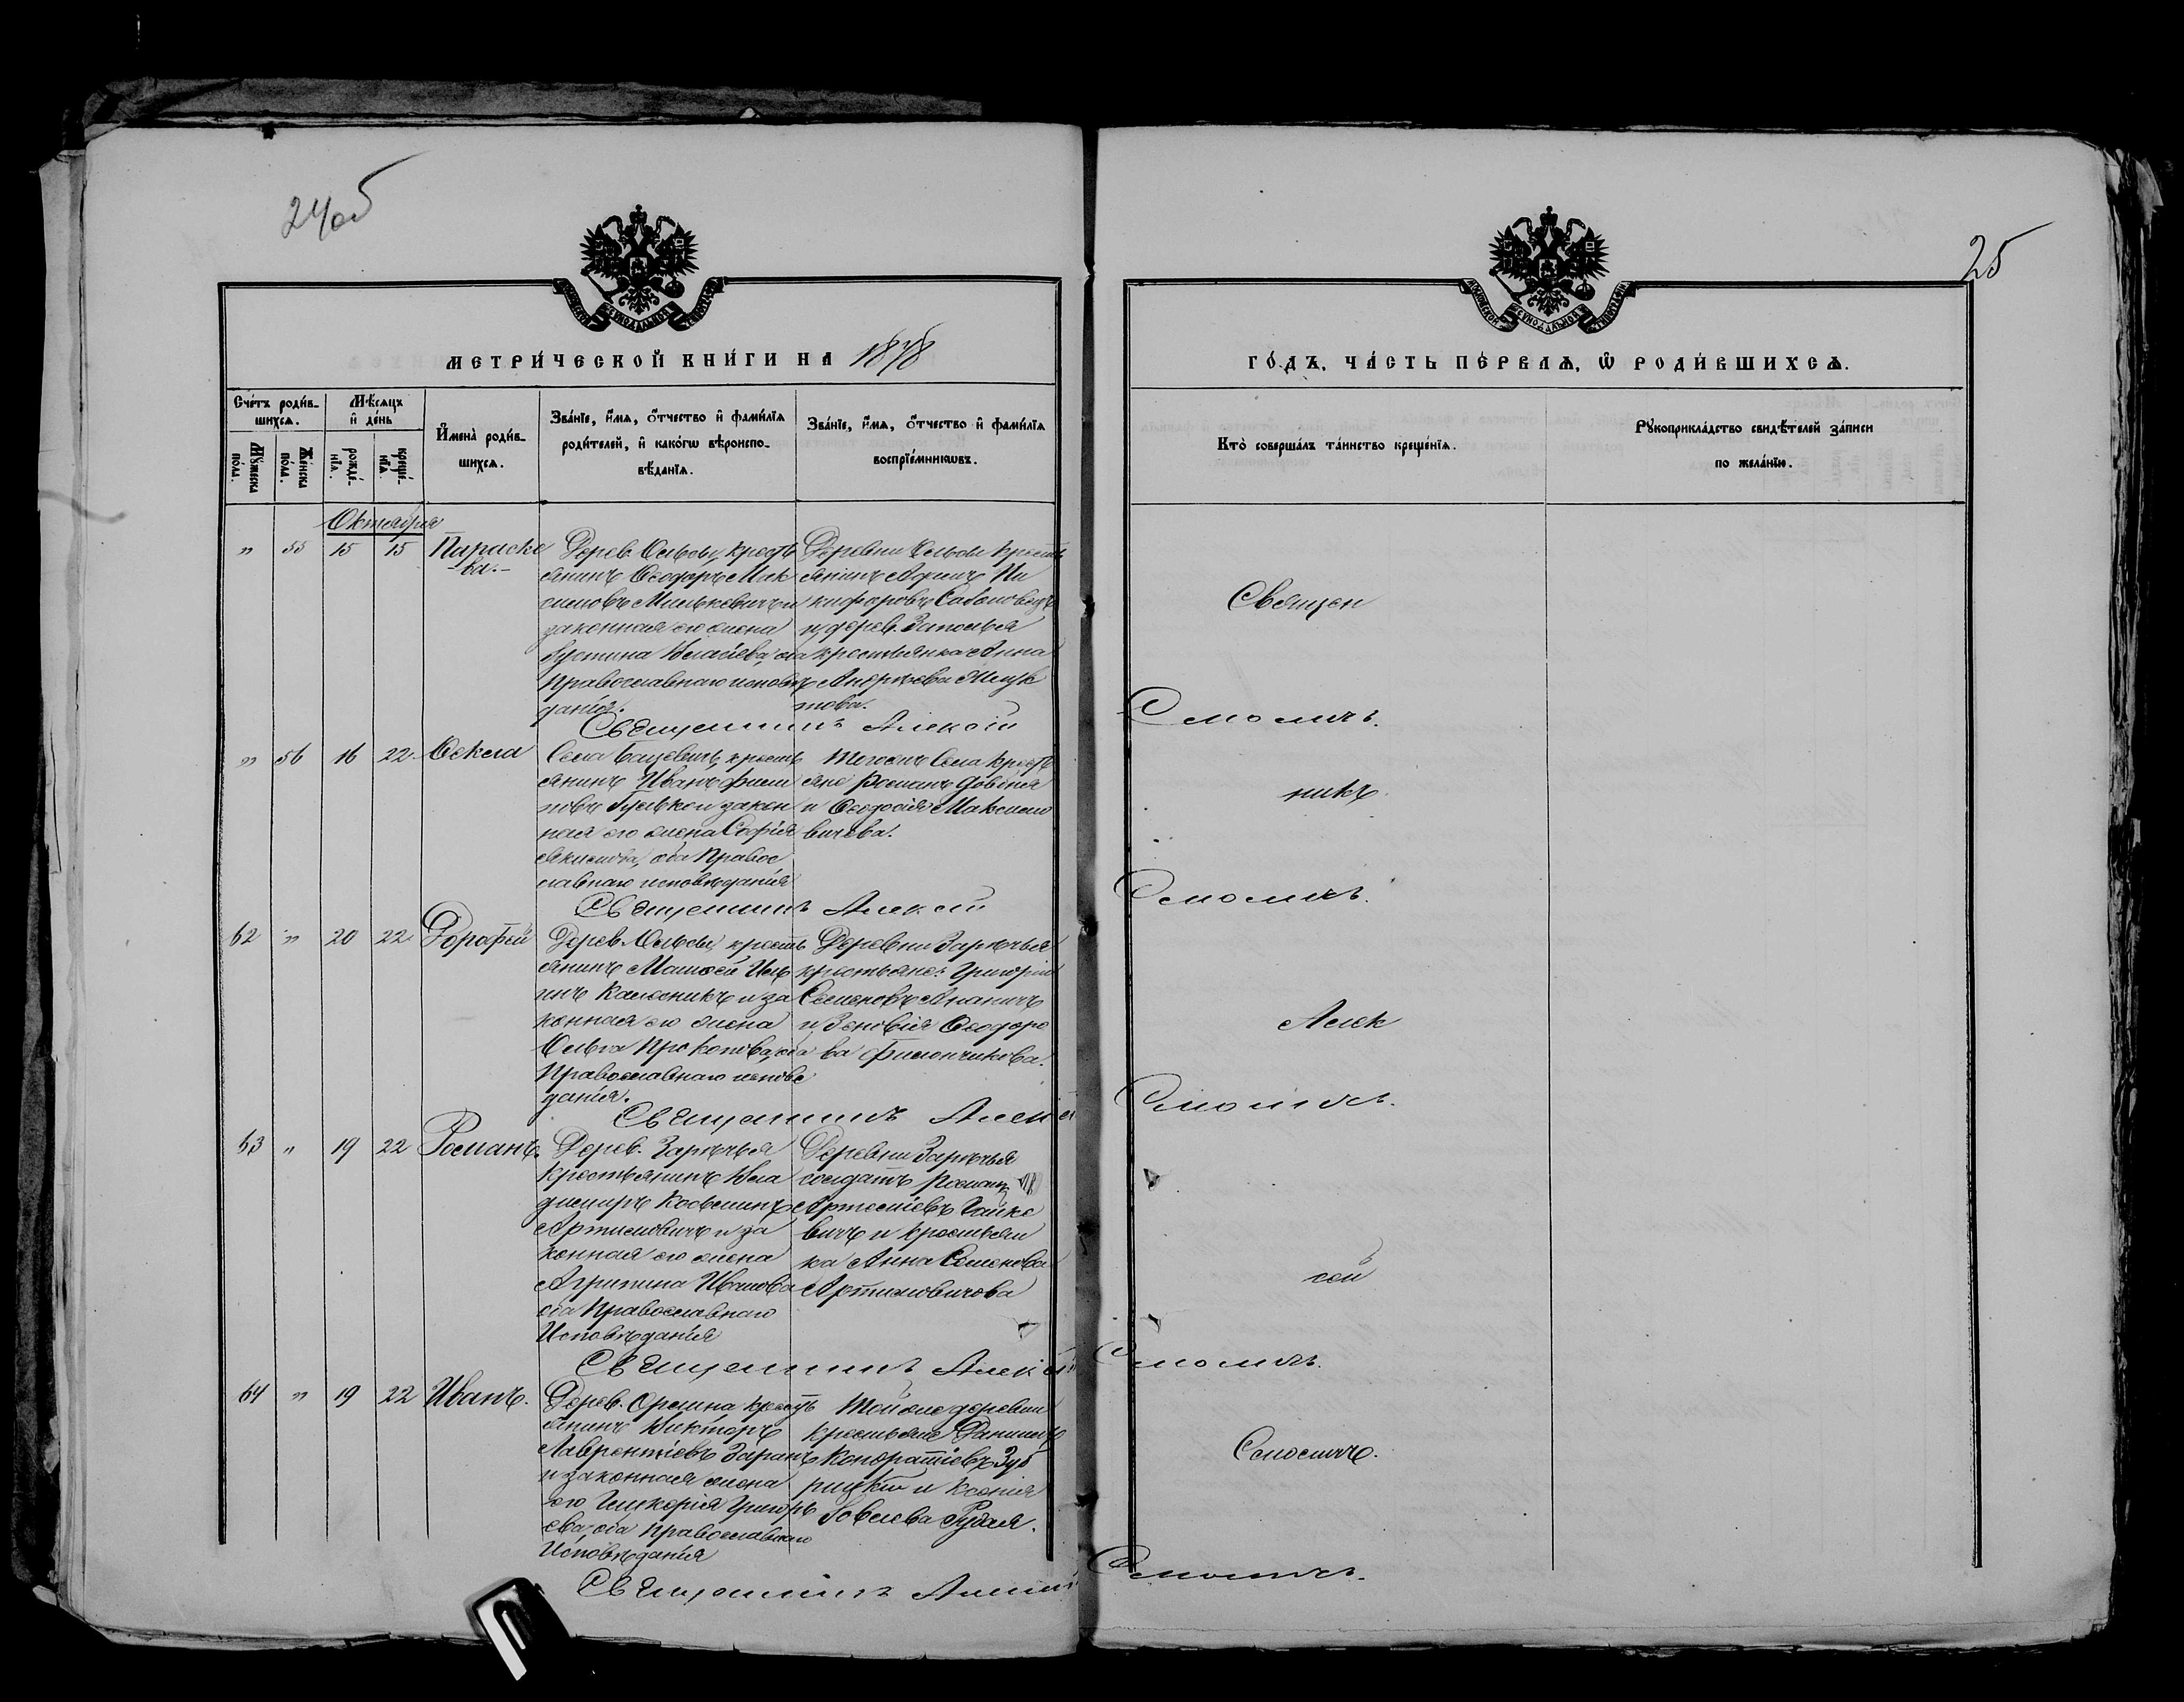 24об
25
МЕТРИ́ЧЕСКОЙ КНИ́ГИ НА 1878
ГО́ДЪ, ЧА́СТЬ ПЕ́РВАѦ, Ѿ РОДИ́ВШИХСѦ.
Сче́тъ роди́в-
шихсѧ.
Мꙋ́жеска
по́ла.
Же́нска
по́ла.
Мѣ́сѧцъ
и де́нь
рожде́-
нїѧ.
креще́-
нїѧ.
Имена̀ роди́в-
шихсѧ.
Зва́нїе, и́мѧ, о́тчество и фами́лїѧ
роди́телей, и како́гѡ вѣроиспо-
вѣ́данїѧ.
Зва́нїе, и́мѧ, о́тчество и фами́лїѧ
воспрїе́мникѡвъ.
Кто̀ соверша́лъ та́инство креще́нїѧ.
Рꙋкоприкла́дство свидѣ́телей за́писи
по жела́нїю.
Октября
" 55 15 15 Параске
-ва.-
Дерев. Ольсы, кресть
янинъ Ѳеодоръ Мак
симовъ Милькевичъ и
законная его жена
Іустина Власіева, оба
Православнаго исповѣ
данія.
Деревни Ольсы крестъ
янинъ Афимъ Ни
кифоровъ
и дерев. Заполья
крестьянка Анна
Андреева
това.
Священникъ Алексій Смоличъ.
" 56 16 22 Ѳекла
Села Бацевичъ, кресть
янинъ Иванъ Фили
повъ Гулько и закон
ная его жена Софія
Якимова, оба Правос
лавнаго исповѣданія
Тогожъ Села крест
яне Романъ
и Ѳеодосія Максимо
вичева.
Священникъ Алексій Смоличъ.
62 " 20 22 Дорофей
Дерев. Ольсы, кресть
янинъ Матѳей Иль
инъ Калесникъ и за
конная его жена
Ольга Прокопова, оба
Православнаго исповѣ
данія.
Деревни Зарѣчья
крестьяне: Григорій
Семеновъ Ананичъ
и Зеновія Ѳеодоро
ва Филончикова.
Священникъ Алексій Смоличъ.
63 " 19 22 Романъ.
Дерев. Зарѣчья
Крестьянинъ Вла
димиръ Косьминъ
Артимовичъ и за
конная его жена
Агрипина Иванова
оба Православнаго
Исповѣданія
Деревни Зарѣчья
солдатъ Романъ
Артеміевъ Гайке
вичъ и крестьян
ка Анна Семенова
Артимовичова
Священникъ Алексій Смоличъ.
64 " 19 22 Иванъ.
Дерев. Орешна кресть
янинъ Викторъ
Лаврентіевъ Заранъ
и законная жена
его Гликерія Григорь
ева, оба православнаго
Исповѣданія
Той же деревни
крестьяне Даниилъ
Кондратіевъ Зуб
рицкій и Ксенія
Іовлева Рудая.
Священникъ Алексій Смоличъ.
Священ
никъ
Алек
сѣй
Смоличъ.